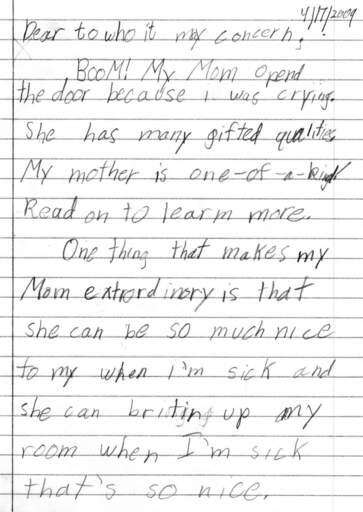 4/17/2009
Dear to who it my concern,
BooM! My Mom opend
the door because i was crying.
She has many gifted qualities
My mother is one-of-a-kind
Read on to learm more.
One thing that makes my
Mom extrordinory is that
she can be so much nice
to my when i'm sick and
she can briting up my
room when I'm sick
that's so nice.